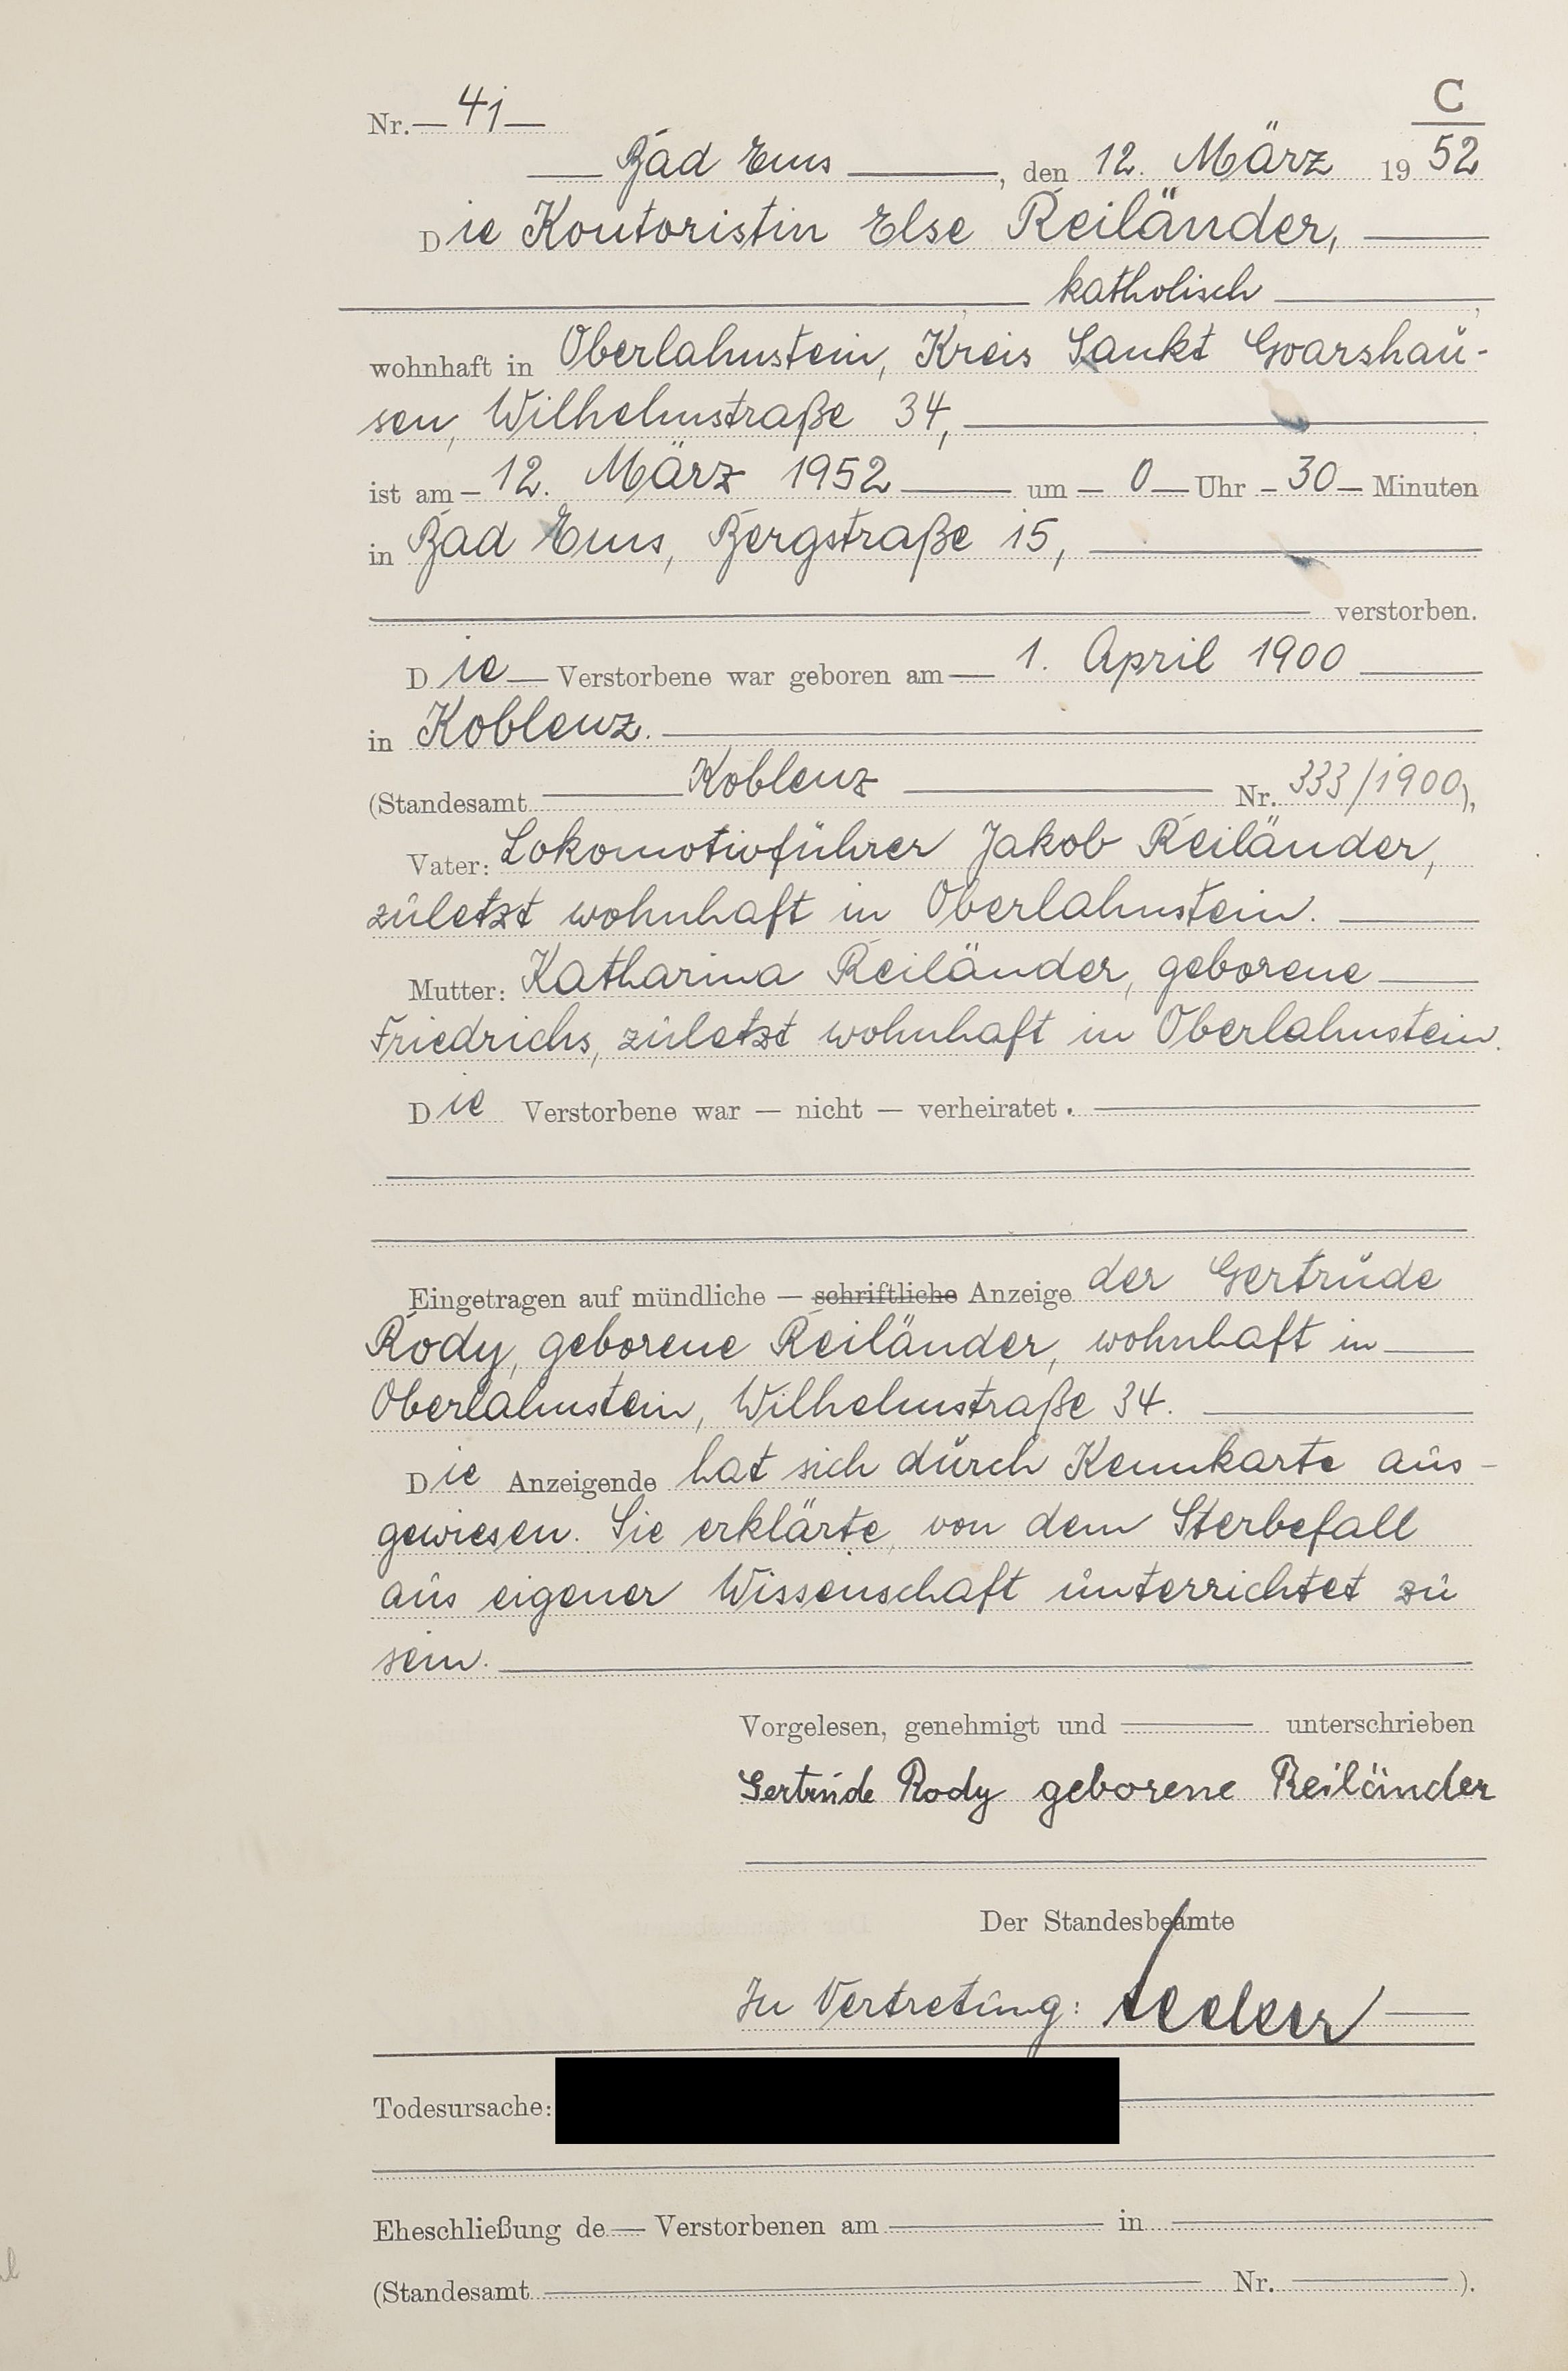 C
Nr. 41
Bad Ems, den 12. März 1952
Die Kontoristin Else Reiländer,
katholisch,
wohnhaft in Oberlahnstein, Kreis Sankt Goarshau-
sen, Wilhelmstraße 34,
ist am 12. März 1952 um 0 Uhr 30 Minuten
in Bad Ems, Bergstraße 15,
verstorben.
Die Verstorbene war geboren am 1. April 1900
in Koblenz.
(Standesamt Koblenz Nr. 333/1900),
Vater: Lokomotivführer Jakob Reiländer,
zuletzt wohnhaft in Oberlahnstein.
Mutter: Katharina Reiländer, geborene
Friedrichs, zuletzt wohnhaft in Oberlahnstein.
Die Verstorbene war — nicht — verheiratet.
Eingetragen auf mündliche — schriftliche Anzeige der Gertrude
Rody, geborene Reiländer, wohnhaft in
Oberlahnstein, Wilhelmstraße 34.
Die Anzeigende hat sich durch Kennkarte aus-
gewiesen. Sie erklärte, von dem Sterbefall
aus eigener Wissenschaft unterrichtet zu
sein.
Vorgelesen, genehmigt und unterschrieben
Gertrude Rody geborene Reiländer
Der Standesbeamte
In Vertretung:
Todesursache:
Eheschließung de Verstorbenen am in
(Standesamt Nr. ).